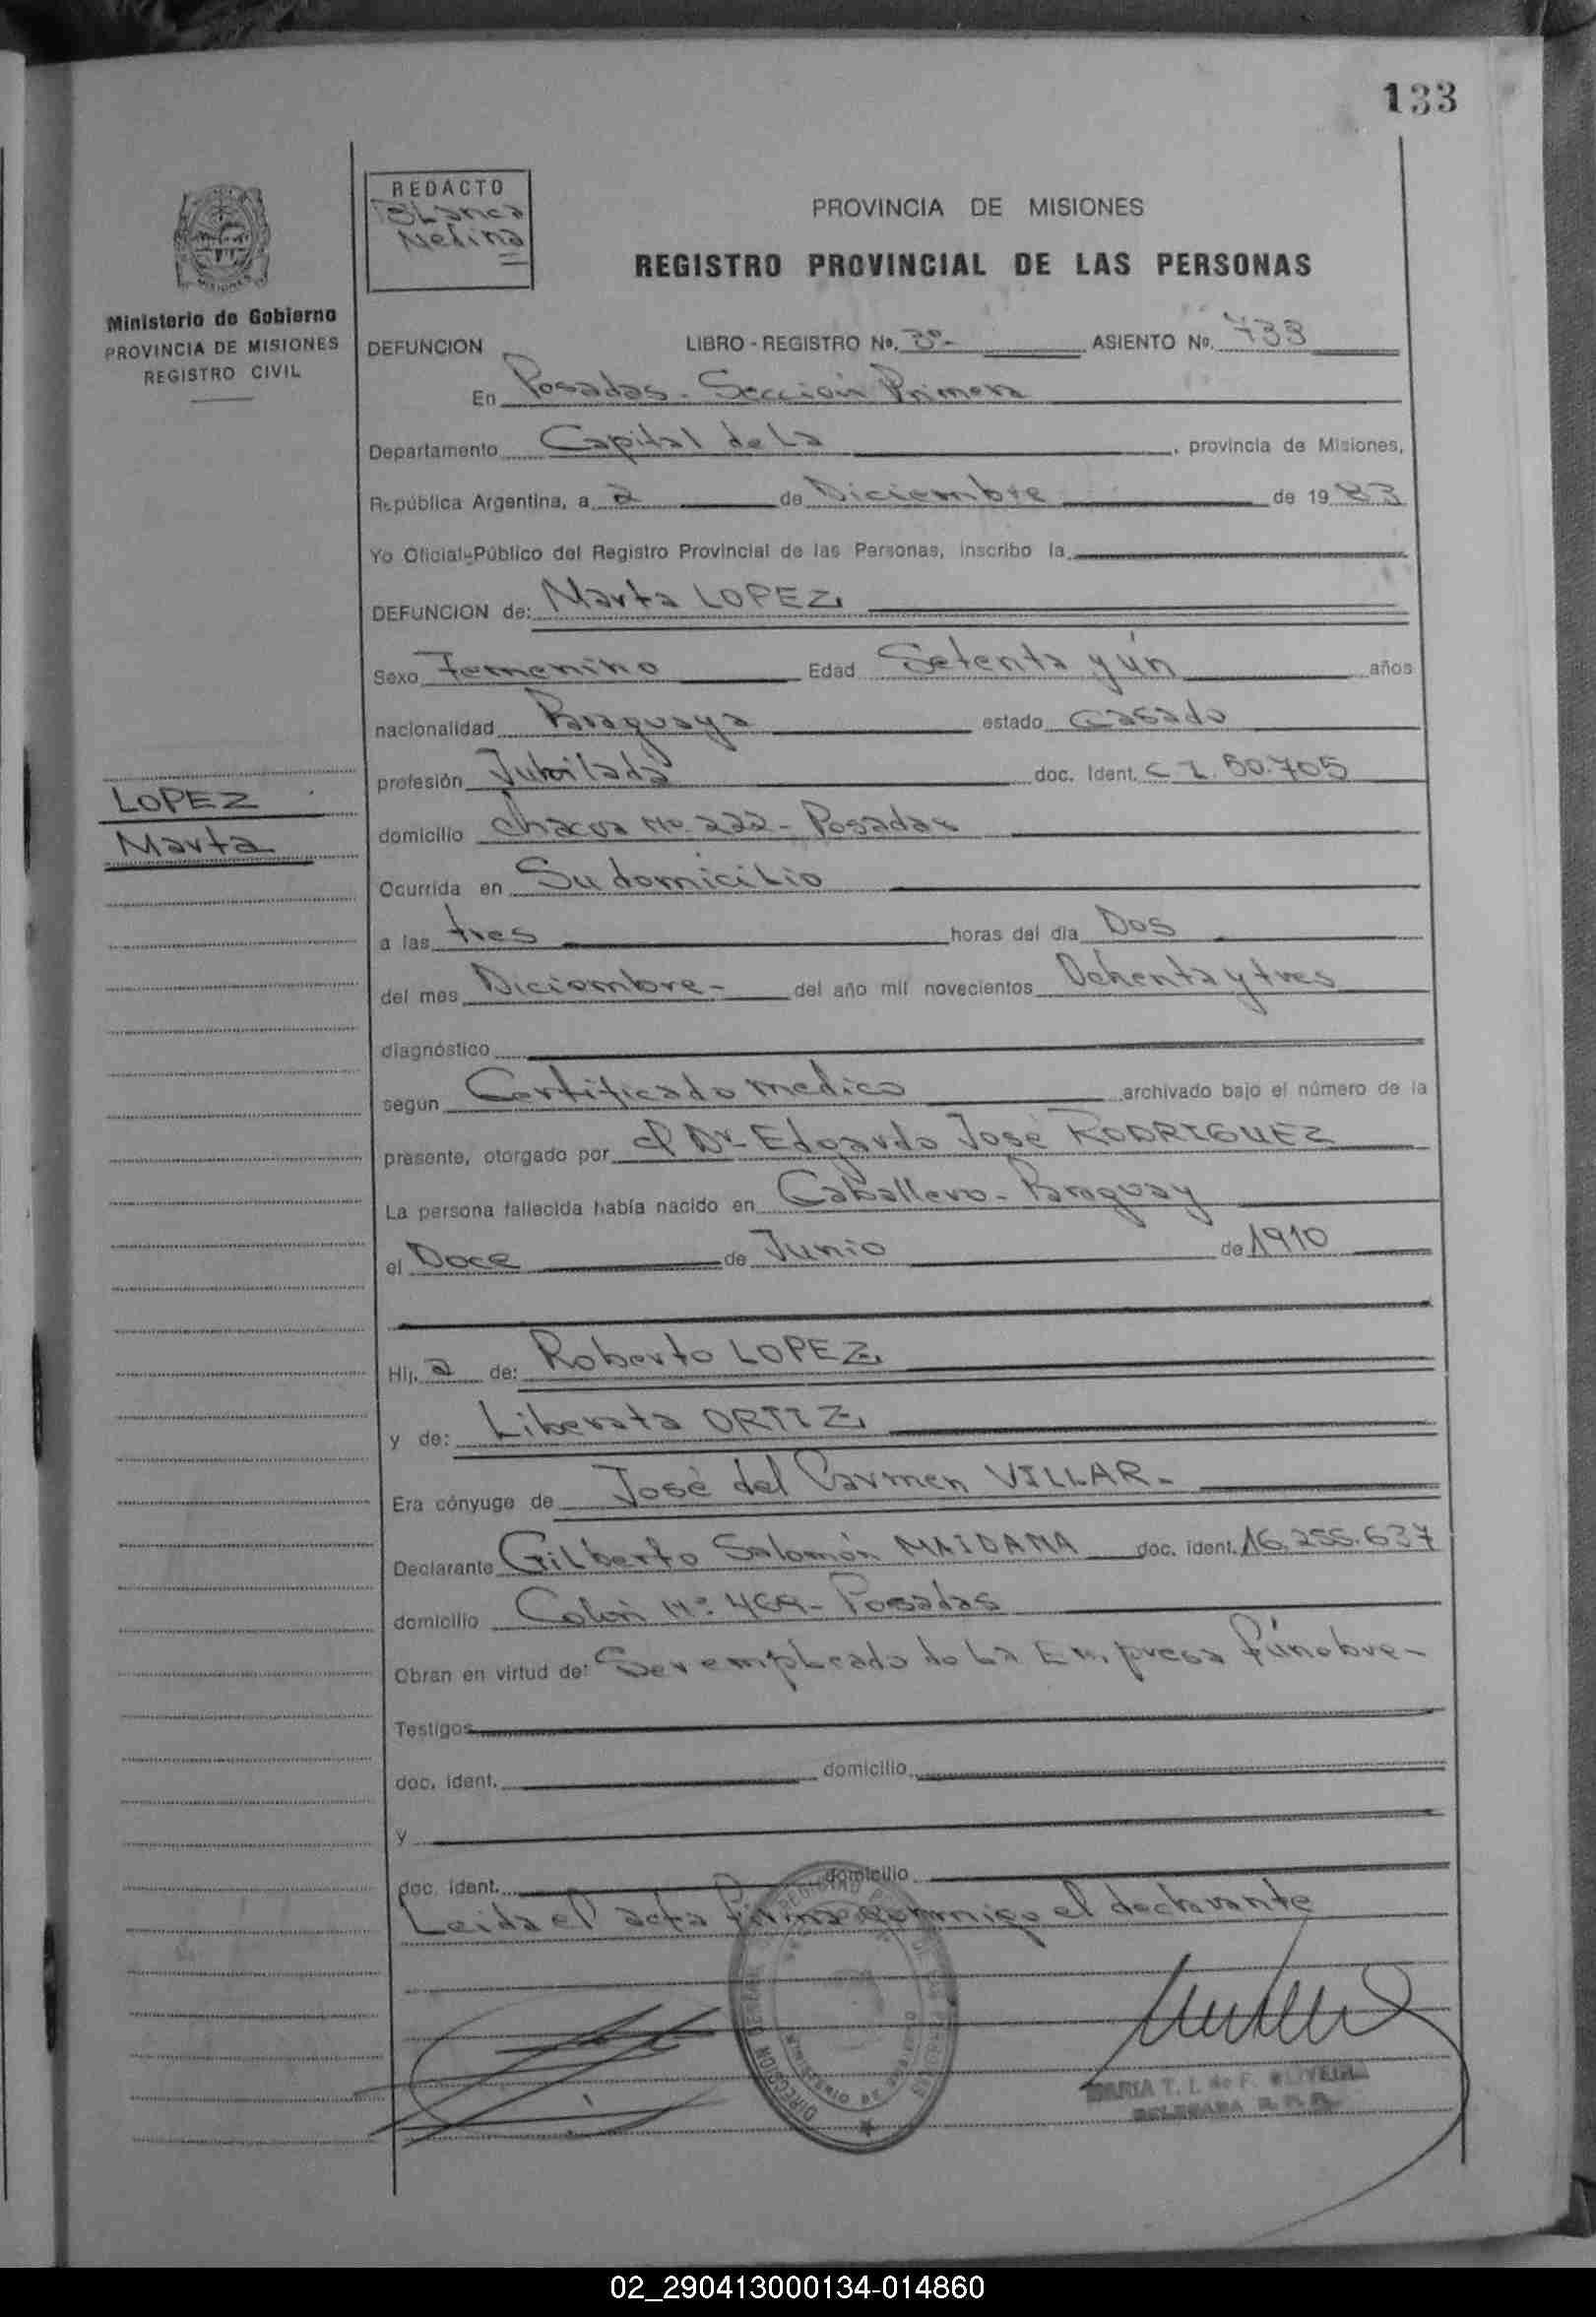 133
REDACTO
Blanca
Nelina
PROVINCIA DE MISIONES
REGISTRO PROVINCIAL DE LAS PERSONAS
Ministerio de Gobierno
PROVINCIA DE MISIONES
REGISTRO CIVIL
DEFUNCION LIBRO - REGISTRO No. 3º- ASIENTO No. 733
En Posadas - Sección Primera
Departamento Capital de La , provincia de Misiones,
República Argentina, a 2 de Diciembre de 19 83
Yo Oficial-Público del Registro Provincial de las Personas, inscribo la
DEFUNCION de: Marta LOPEZ
Sexo Femenino Edad Setenta y ún años
nacionalidad Paraguaya estado Casado
profesión Jubilada doc. Ident. C I. 50.705
LOPEZ
Marta
domicilio Chacra Nº 222 - Posadas
Ocurrida en Su domicilio
a las tres horas del día Dos
del mes Diciembre - del año mil novecientos Ochenta y tres
diagnóstico
según Certificado medico archivado bajo el número de la
presente, otorgado por el Dr. Edgardo José RODRIGUEZ
La persona fallecida había nacido en Caballero - Paraguay
el Doce de Junio de 1910
Hij. a de: Roberto LOPEZ
y de: Liberata ORTIZ
Era cónyuge de José del Carmen VILLAR -
Declarante Gilberto Salomón MAIDANA doc. ident. 16.255.637
domicilio Colón Nº 469 - Posadas
Obran en virtud de: Ser empleado de La Empresa fúnebre -
Testigos
doc. ident. domicilio
y
doc. ident. domicilio
Leida el acta firma conmigo el declarante
MARIA T. I. de F. OLIVEIRA
DELEGADA R. P. P.
02_290413000134-014860